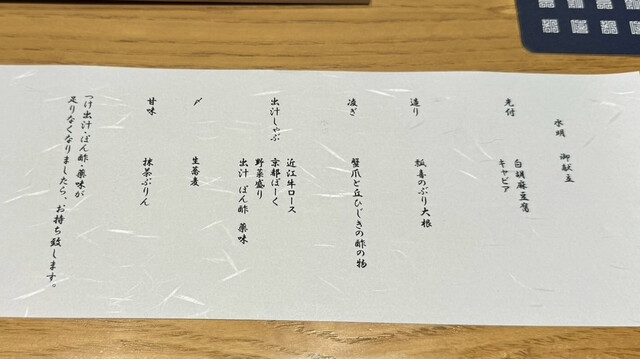 御献立
先付
白胡麻豆腐
キャビア
造り
瓢喜のぶり大根
凌ぎ
蟹爪と丘ひじきの酢の物
出汁しゃぶ
近江牛ロース
京都ぽーく
野菜盛り
出汁 ぽん酢 薬味
〆
生蕎麦
甘味
抹茶ぷりん
つけ出汁・ぽん酢・薬味が
足りなくなりましたら、お持ち致します。